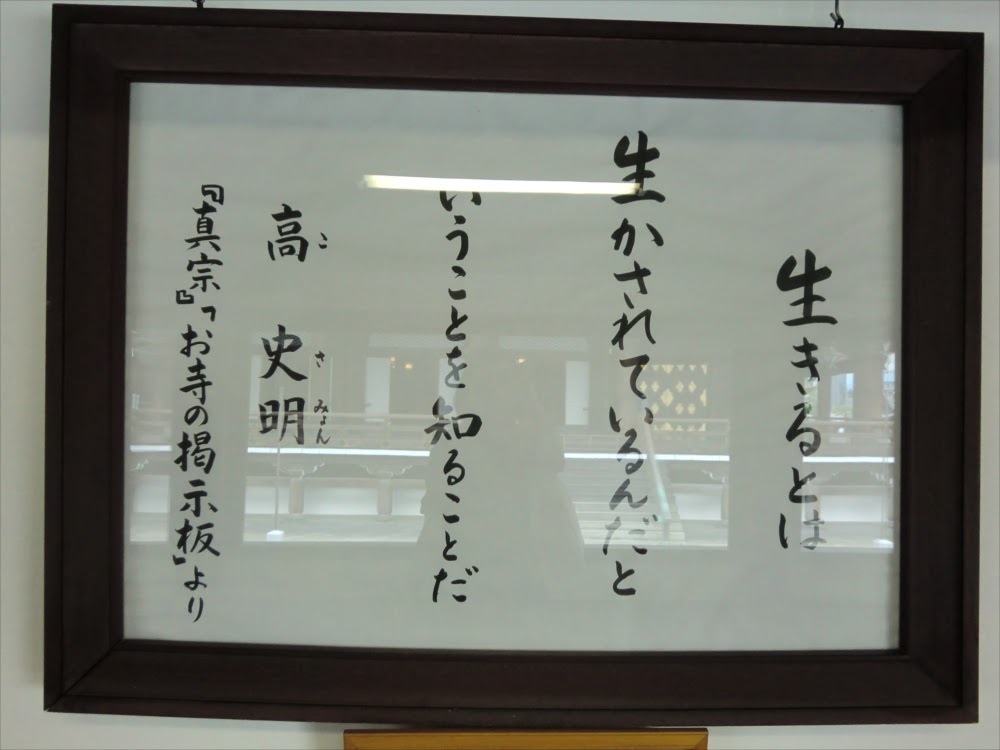 生きるとは
生かされているんだと
いうことを知ることだ
高 史明
こ さ みょん
『真宗』「お寺の掲示板」より